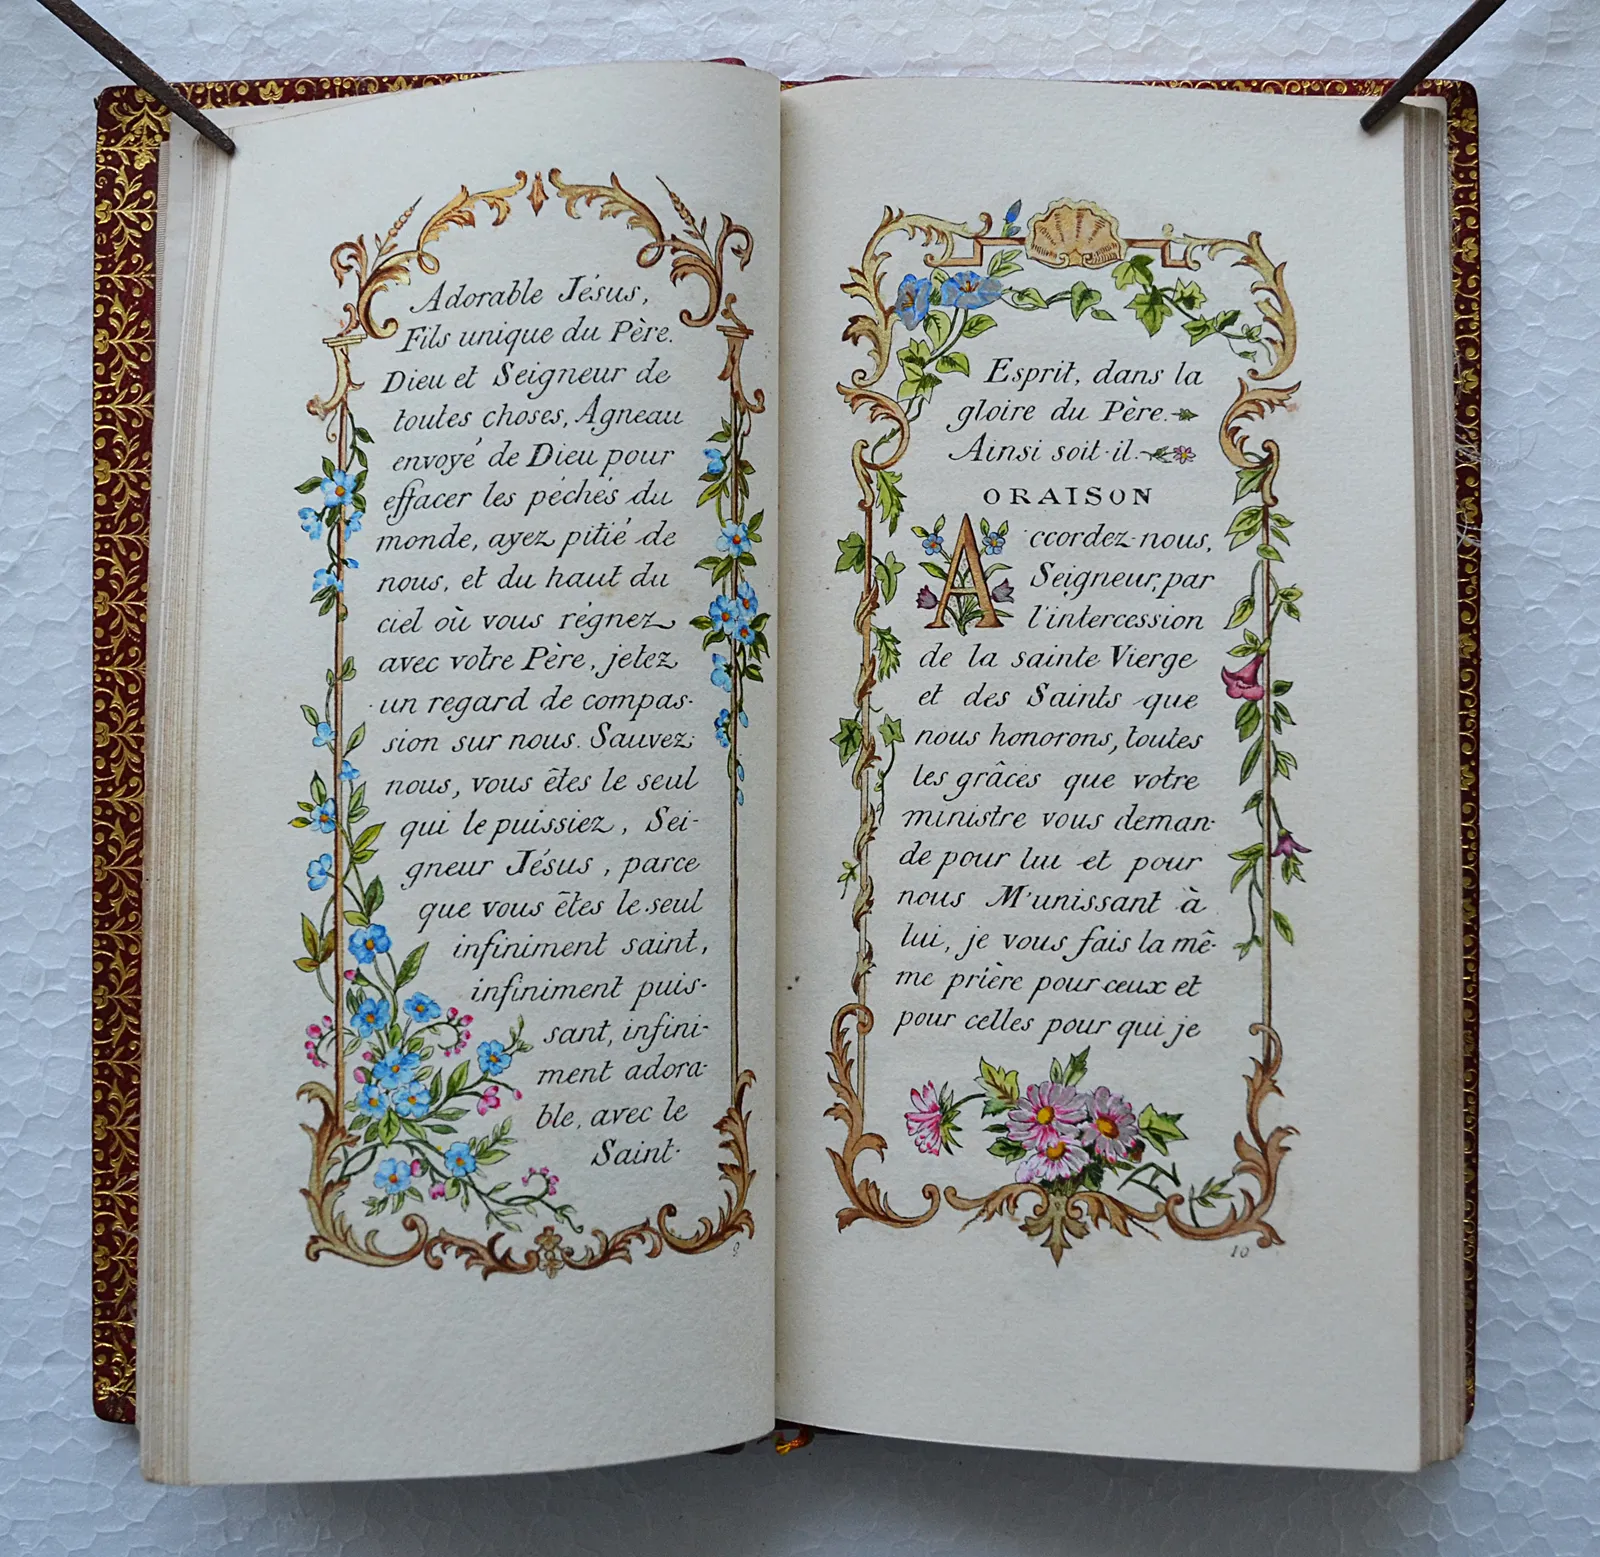 Adorable Jésus,
Fils unique du Père.
Dieu et Seigneur de
toutes choses, Agneau
envoyé de Dieu pour
effacer les péchés du
monde, ayez pitié de
nous, et du haut du
ciel où vous régnez
avec votre Père, jetez
un regard de compas-
sion sur nous. Sauvez-
nous, vous êtes le seul
qui le puissiez, Sei-
gneur Jésus, parce
que vous êtes le seul
infiniment saint,
infiniment puis-
sant, infini-
ment adora-
ble, avec le
Saint-
9
Esprit, dans la
gloire du Père.
Ainsi soit-il.
ORAISON
Accordez-nous,
Seigneur, par
l'intercession
de la sainte Vierge
et des Saints que
nous honorons, toutes
les grâces que votre
ministre vous deman-
de pour lui et pour
nous M'unissant à
lui, je vous fais la mê-
me prière pour ceux et
pour celles pour qui je
10